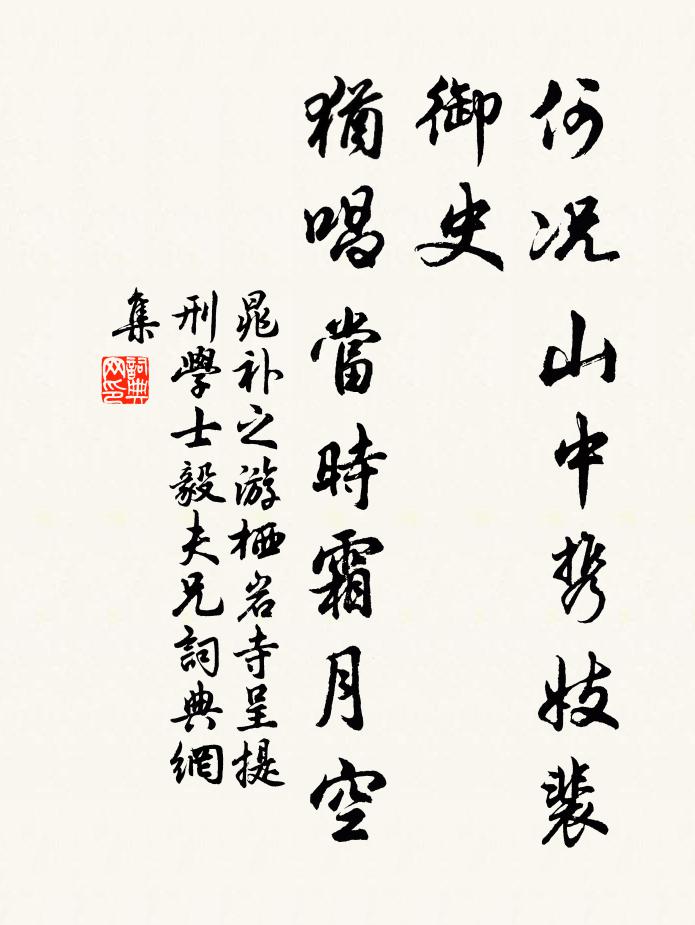 何況山中携妓裴
御史
猶唱當時霜月空
晁补之游栖岩寺呈提
刑學士毅夫兄詞典網
集
詞典
网印